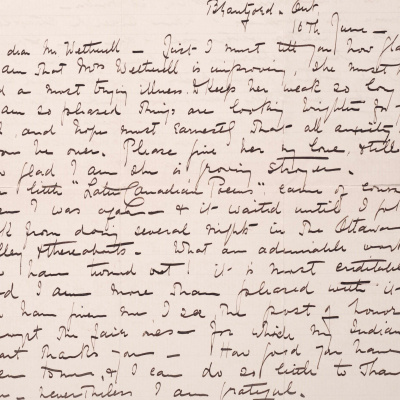 Brantford. Ont.
10th June —
dear Mr Wetherell — Just I must tell you how gla
am that Mrs Wetherell is improving, she must
d a most trying illness. It keeps her weak so long
am so pleased things are looking brighter for
d, and hope most earnestly that all anxiety
be over. Please give her my love, & tell
glad I am she is growing stronger.
little "Later Canadian Poems" came of course
I was again — & it waited until I got
from doing several nights in the Ottawa
lley & thereabouts. What an admirable work
have turned out! it is most creditable
d I am more than pleased with it
have given me, I see, the post of honor
mongst the fair ones — for which my Indian
art thanks you — How good you have
been to me, & I can do so little to than
— nevertheless I am grateful.